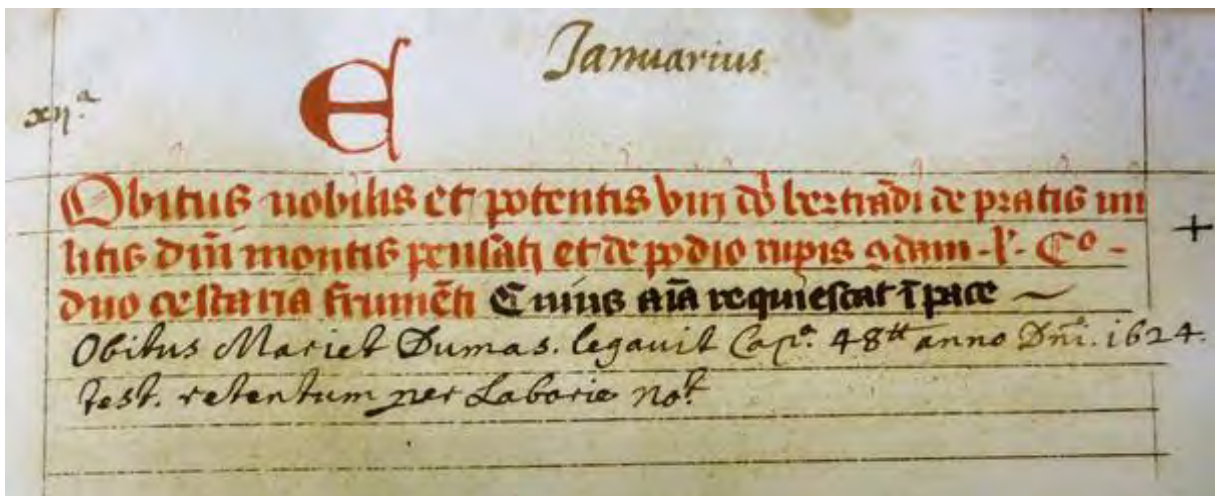 Januarius
xij.a
e
Obitus nobilis et potentis viri dn̄i bertrādi de pratis mi
litis dn̄i montis pensati et de podio rupis q̄dam ·l'· Co ·
duo cestaria frumēti Cuius aīa requiescat ī pace
+
Obitus Mariet Dumas. legavit Capo. 48tt anno Dn̄i. 1624.
test. retentum per Laborie not